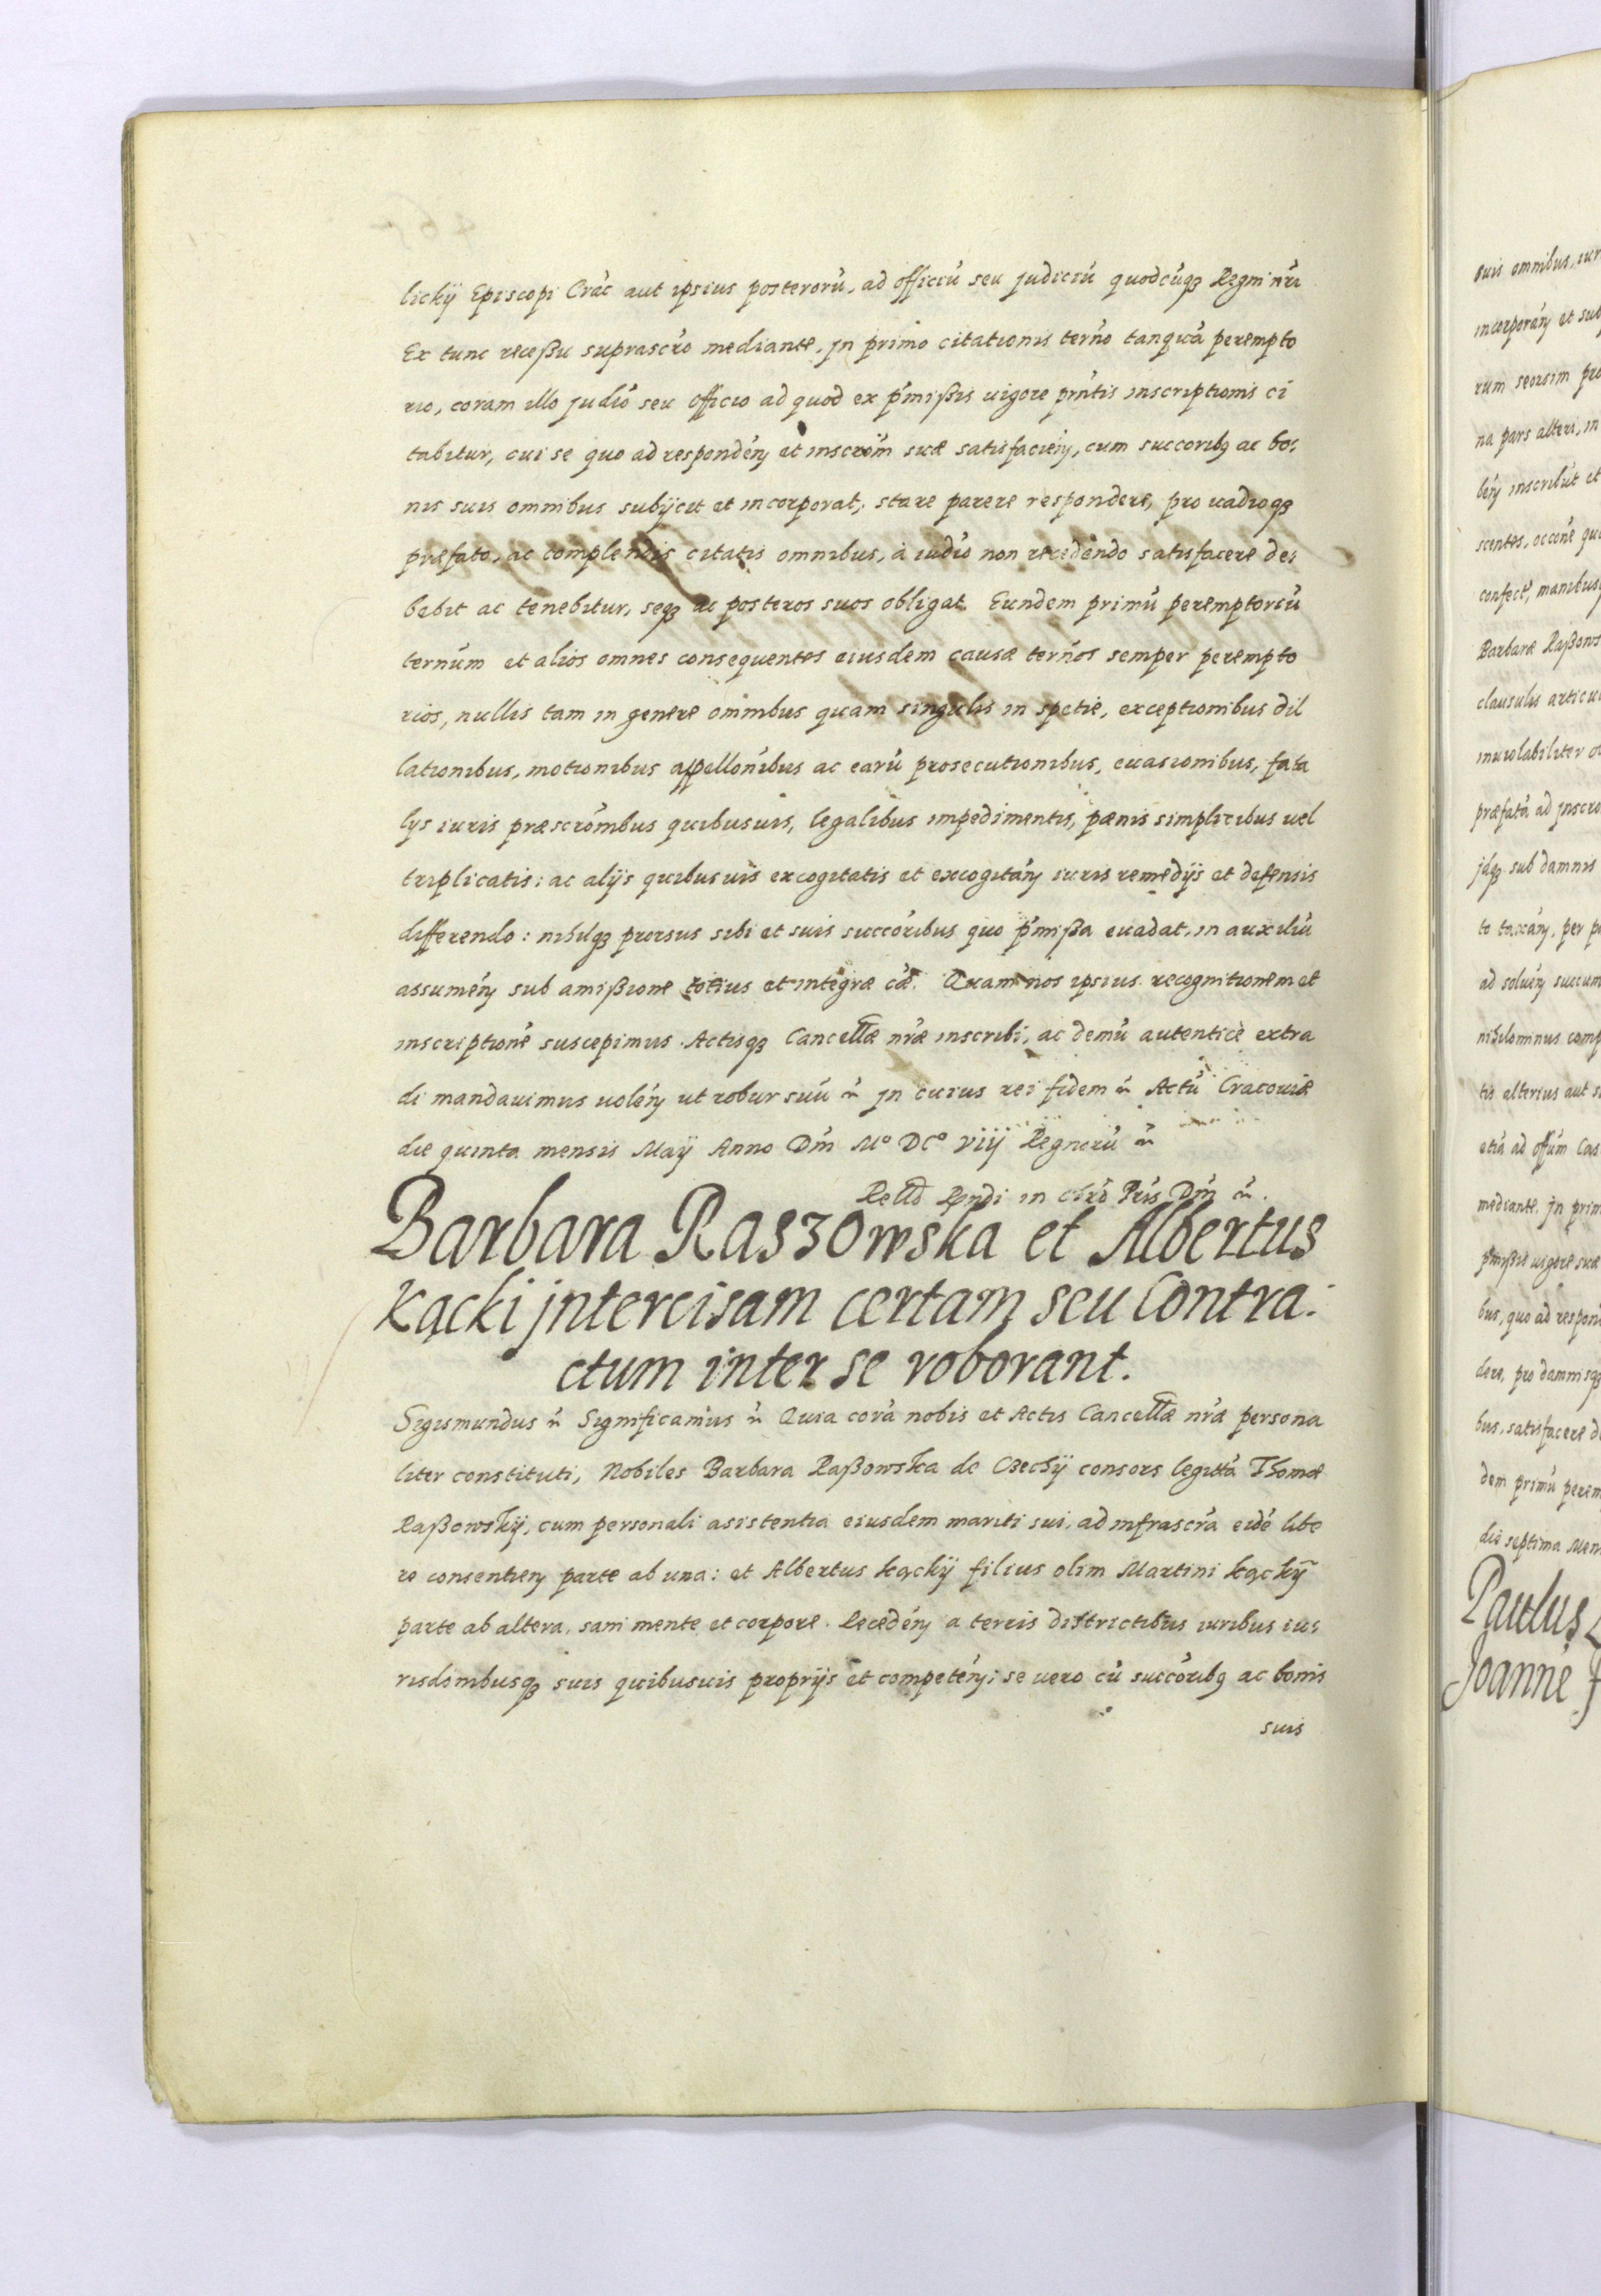 lickÿ Episcopi Crac̃ aut ipsius posterorũ, ad officiũ seu judiciũ quodcũqꝫ Regni nr̃i
Ex tunc receßu suprascr̃o mediante, jn primo citationis terñо tanquã perempto
rio, coram illo judĩo seu officio ad quod ex p̃mißis uigore pñtis inscriptionis ci
tabitur, cui se quo ad respondeñ et inscrõm suæ satisfacieñ, cum succoribꝫ ac bo:
nis suis omnibus subÿcit et incorporat, stare parere respondere, pro uadioqꝫ
præfato, ac complendis citatis omnibus, à iudĩo non recedendo satisfacere de:
bebit ac tenebitur, seqꝫ ac posteros suos obligat. Eundem primũ peremptoriũ
terñum et alios omnes consequentes eiusdem causæ terños semper perempto
rios, nullis tam in genere omnibus quam singulis in spetie, exceptionibus dil
lationibus, motionibus appellõnibus ac earũ prosecutionibus, euasionibus, fata
lÿs iuris præscrõnibus quibusuis, legalibus impedimentis, pænis simplicibus uel
triplicatis: ac alÿs quibusuis excogitatis et excogitañ iuris remedÿs et defensis
differendo: nihilqꝫ prorsus sibi et suis succõribus quo p̃mißa euadat, in auxiliũ
assumeñ sub amißione totius et integræ cæ̃. Quam nos ipsius recognitionem et
inscriptionẽ suscepimus Actisqꝫ Cancellæ nr̃æ inscribi, ac demũ autenticè extra
di mandauimus uoleñ ut robur suũ &̃ jn cuius rei fidem &̃ Actũ Cracouiæ
die quinta mensis Maÿ Anno Dm̃ Mº DCº viij Regnorũ &̃
Barbara Raszowska et Albertus
Kącki jntercisam certam seu Contra:
ctum inter se roborant.
Sigismundus &̃ Significamus &̃ Quia corã nobis et Actis Cancellæ nr̃æ persona
liter constituti, Nobiles Barbara Raßowska de Czechÿ consors legitt̃a Thomæ
Raßowskÿ, cum personali asistentia eiusdem mariti sui, ad infrascr̃a eidẽ libe
re consentieñ parte ab una: et Albertus kąckÿ filius olim Martini kąckÿ
parte ab altera, sani mente et corpore. Recedeñ a terris districtibus iuribus iu:
risdõnibusqꝫ suis quibusuis proprÿs et competeñ: se uero cũ succõribꝫ ac bonis
suis
suis omnibus, iur
incorporañ et sub
rum seorsim pro
na pars alteri, in
beñ inscribũt et
manibus
Barbaræ Raßows
clausulis articu
inuiolabiliter
præfatã ad jnscr
jdqꝫ sub damnis
to taxañ, per p
ad solueñ succum
nihilominus comp
tis alterius aut s
etiã ad offũm Cas
mediante. jn prim
p̃mißis uigore suæ
bus, quo ad respon
dere, pro damnisqꝫ
bus, satisfacere d
dem primũ perem
die septima Men
Paulus
Joanne